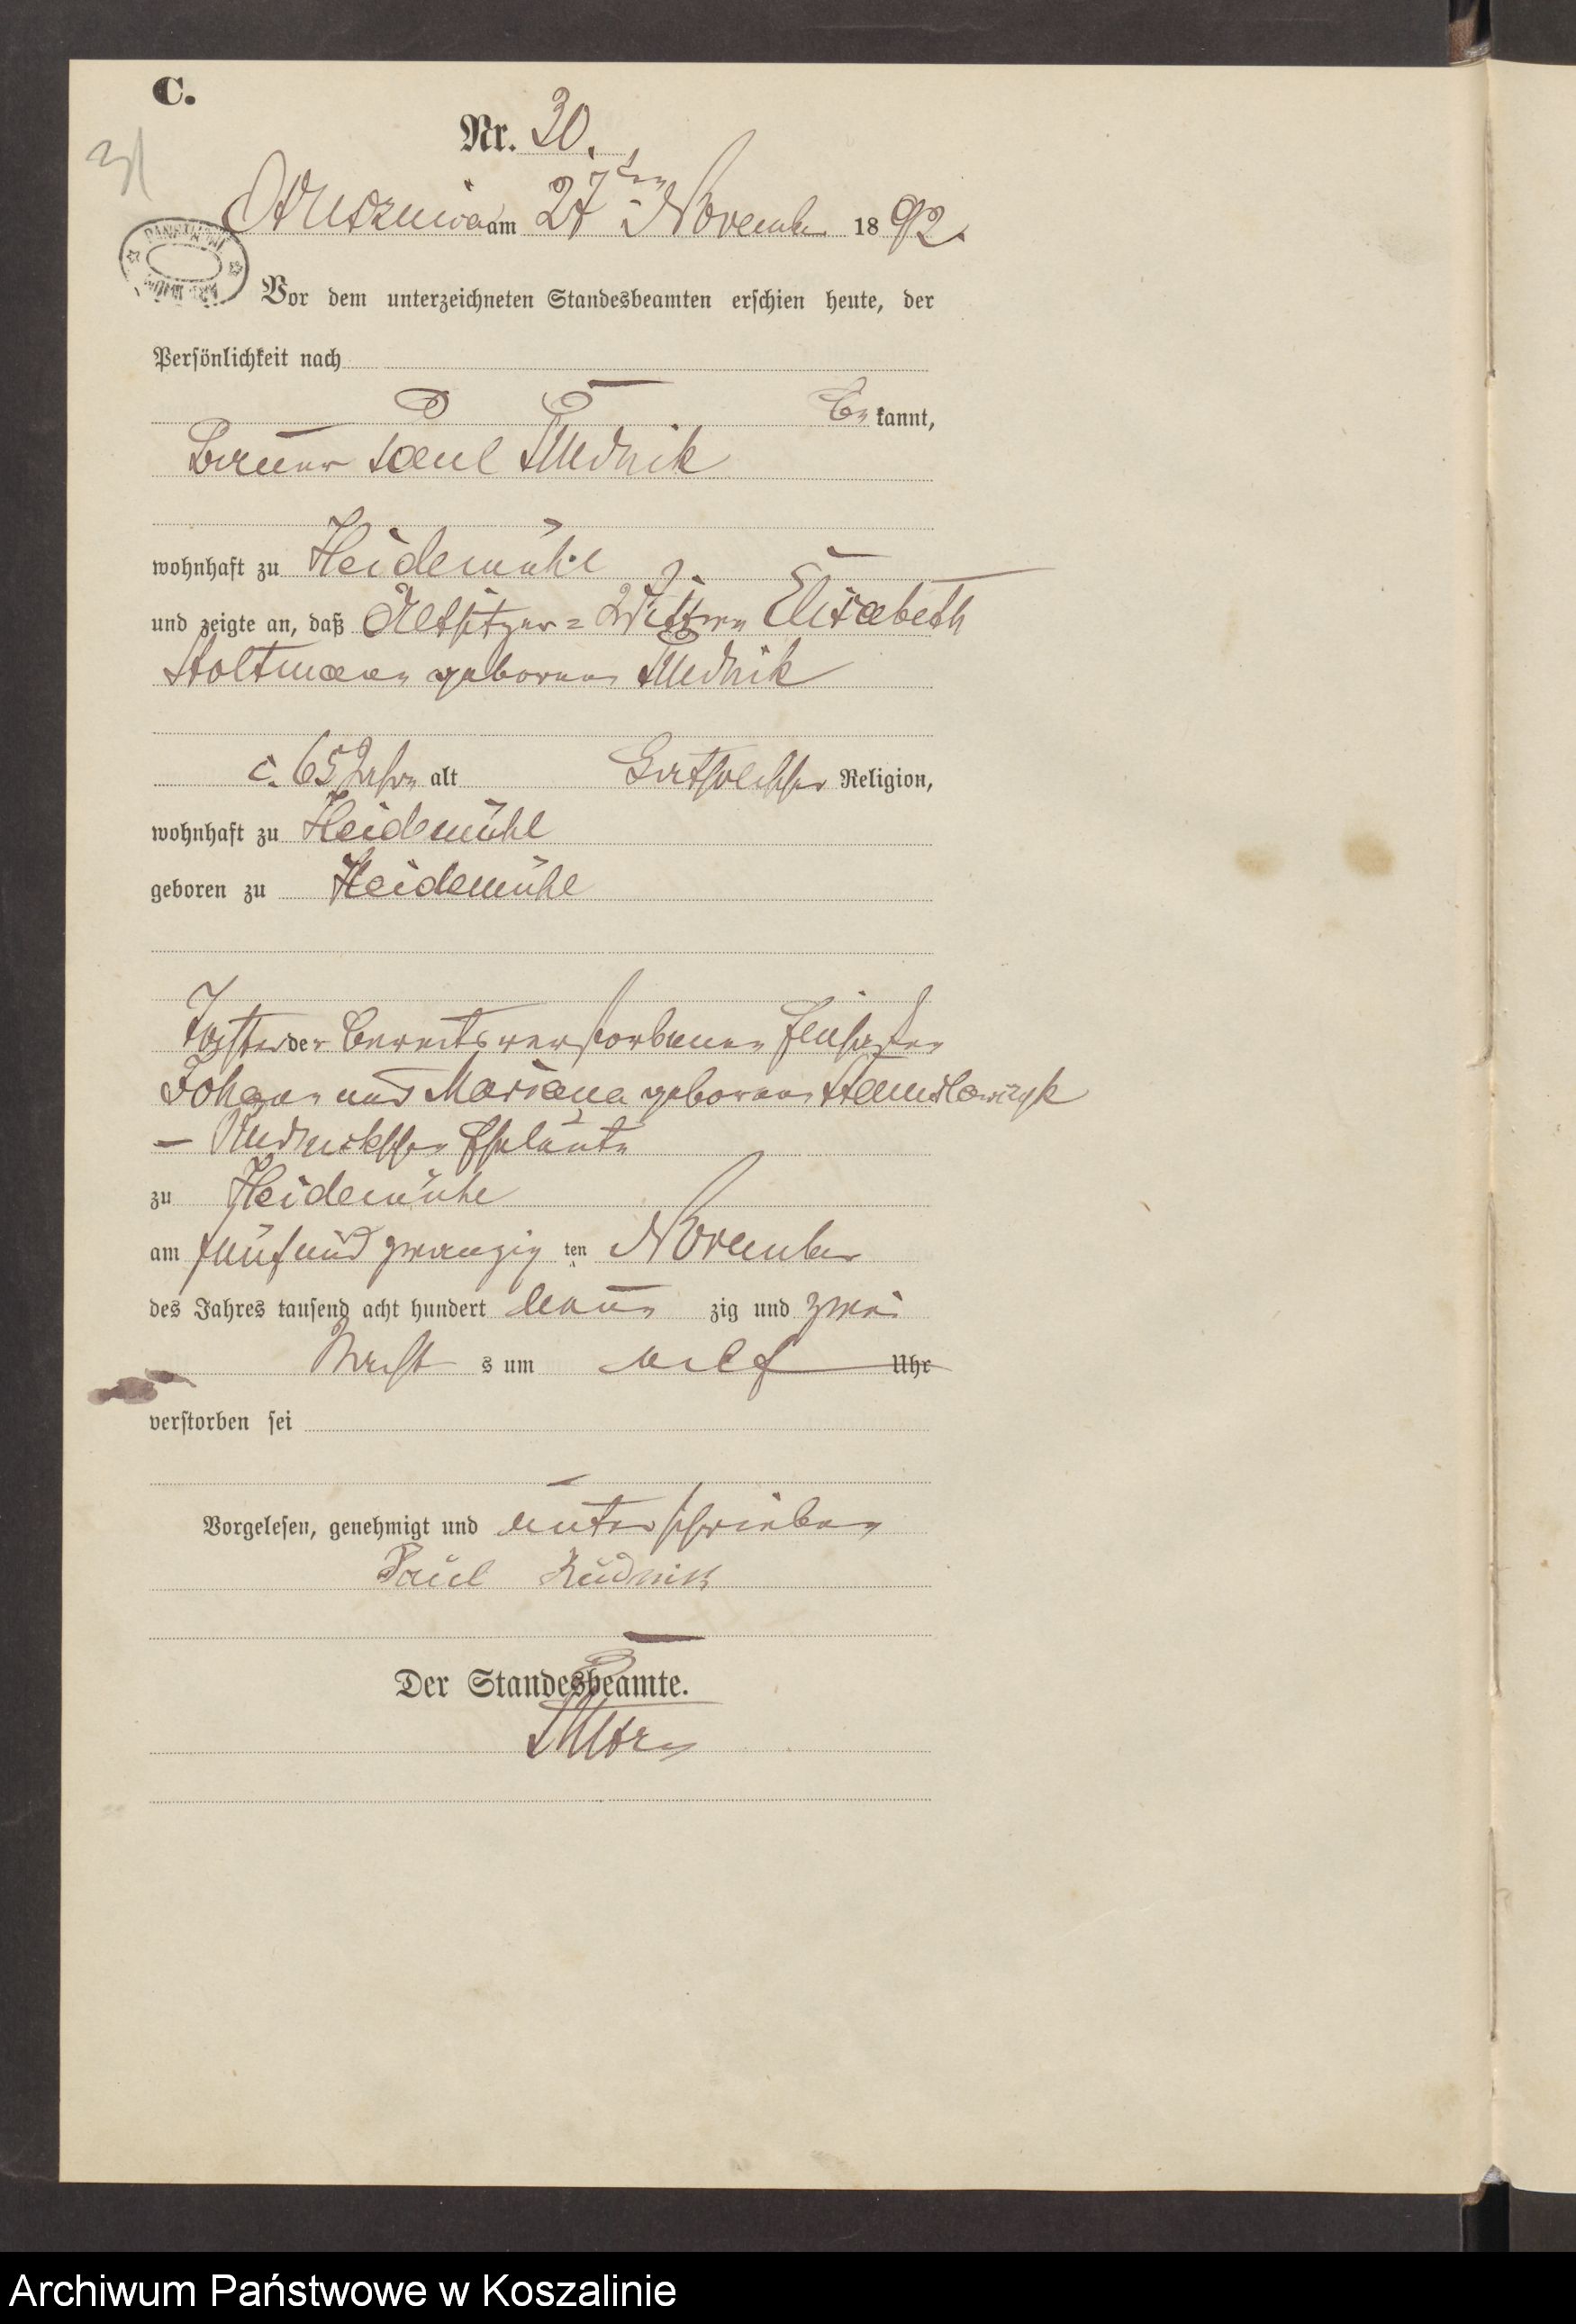 C.
Nr. 30.
31
am 27ten November 1892.
Vor dem unterzeichneten Standesbeamten erschien heute, der
Persönlichkeit nach
be kannt,
Bauer Paul Rudnik
wohnhaft zu Heidemühl
und zeigte an, daß Altsitzer-Wittwe Elisabeth
Stoltmann geborene Rudnik
c. 65 Jahre alt Katholischer Religion,
wohnhaft zu Heidemühl
geboren zu Heidemühl
Tochter der bereits verstorbenen
Johann und Mariana geborene
– Rudnickschen Eheleute
zu Heidemühl
am fünf und zwanzig ten November
des Jahres tausend acht hundert neun zig und zwei
Nacht s um elf Uhr
verstorben sei
Vorgelesen, genehmigt und unterschrieben
Paul Rudnik
Der Standesbeamte.
Archiwum Państwowe w Koszalinie